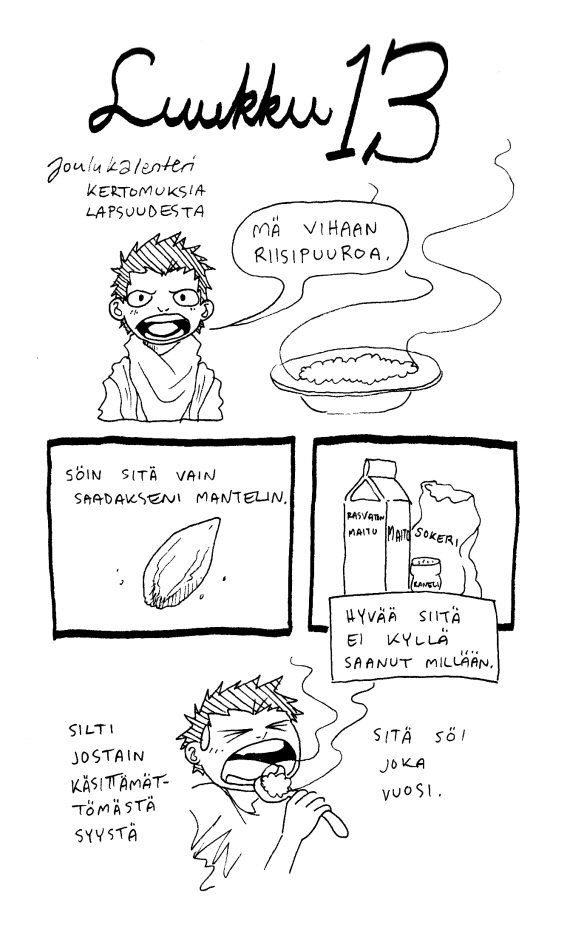 Luukku 13
Joulukalenteri
KERTOMUKSIA
LAPSUUDESTA
MÄ VIHAAN
RIISIPUUROA.
SÖIN SITÄ VAIN
SAADAKSENI MANTELIN.
RASVATON
MAITO
MAITO
SOKERI
KANELI
HYVÄÄ SIITÄ
EI KYLLÄ
SAANUT MILLÄÄN.
SILTI
JOSTAIN
KÄSITTÄMÄT-
TÖMÄSTÄ
SYYSTÄ
SITÄ SÖI
JOKA
VUOSI.